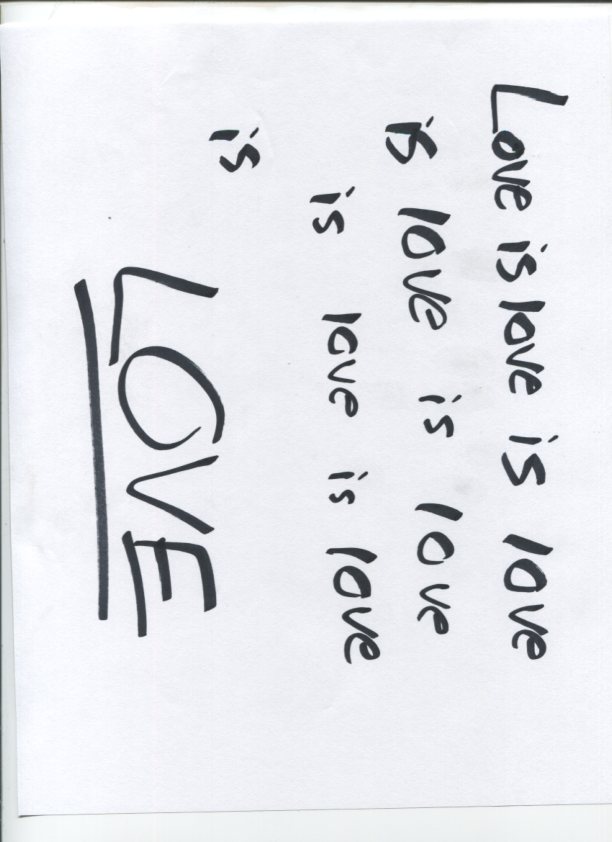 Love is love is love
is love is love
is love is love
is
LOVE